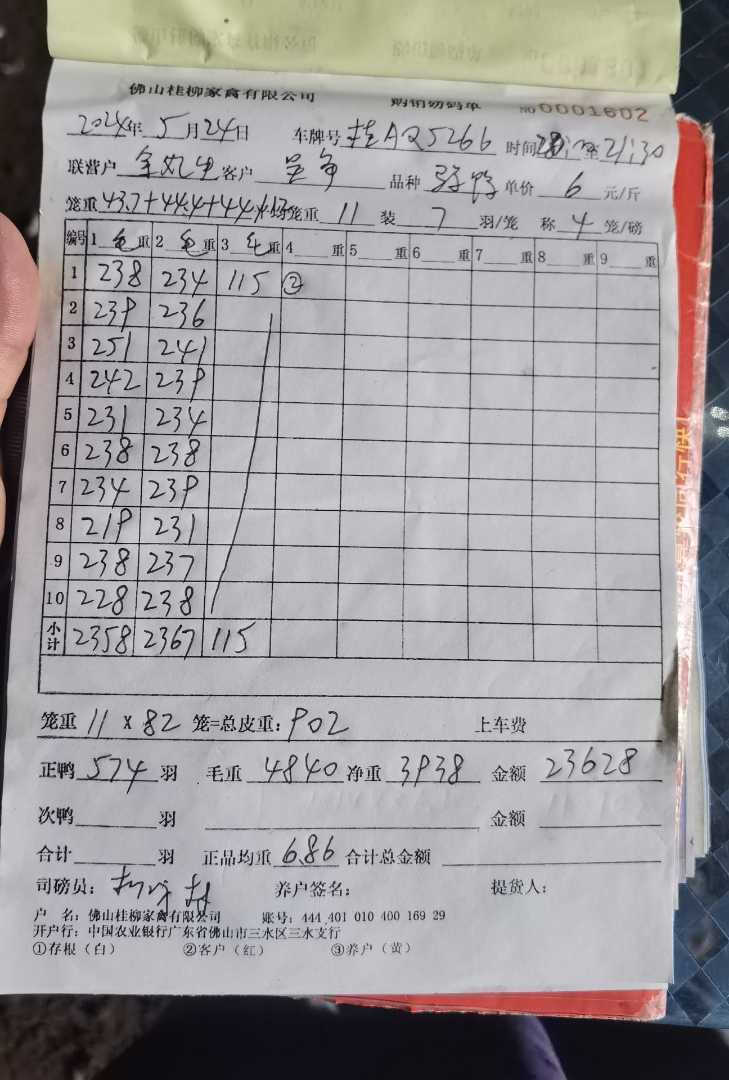 佛山桂柳家禽有限公司 购销易码单 NO 0001602
2024年 5月24日 车牌号 桂AQ5266 时间 至21:30
联营户 客户 品种 单价 6 元/斤
笼重 43.7+44.4+44.4 笼重 11 装 7 羽/笼 称 4 笼/磅
编号 1 毛 重 2 毛 重 3 毛 重 4 重 5 重 6 重 7 重 8 重 9 重
1 238 234 115 ②
2 239 236
3 251 241
4 242 239
5 231 234
6 238 238
7 234 239
8 219 231
9 238 237
10 228 238
小计 2358 2367 115
笼重 11 X 82 笼=总皮重: 902 上车费
正鸭 574 羽 毛重 4840 净重 3938 金额 23628
次鸭 羽 金额
合计 羽 正品均重 6.86 合计总金额
司磅员: 养户签名: 提货人:
户 名: 佛山桂柳家禽有限公司 账号: 444 401 010 400 169 29
开户行: 中国农业银行广东省佛山市三水区三水支行
①存根（白） ②客户（红） ③养户（黄）